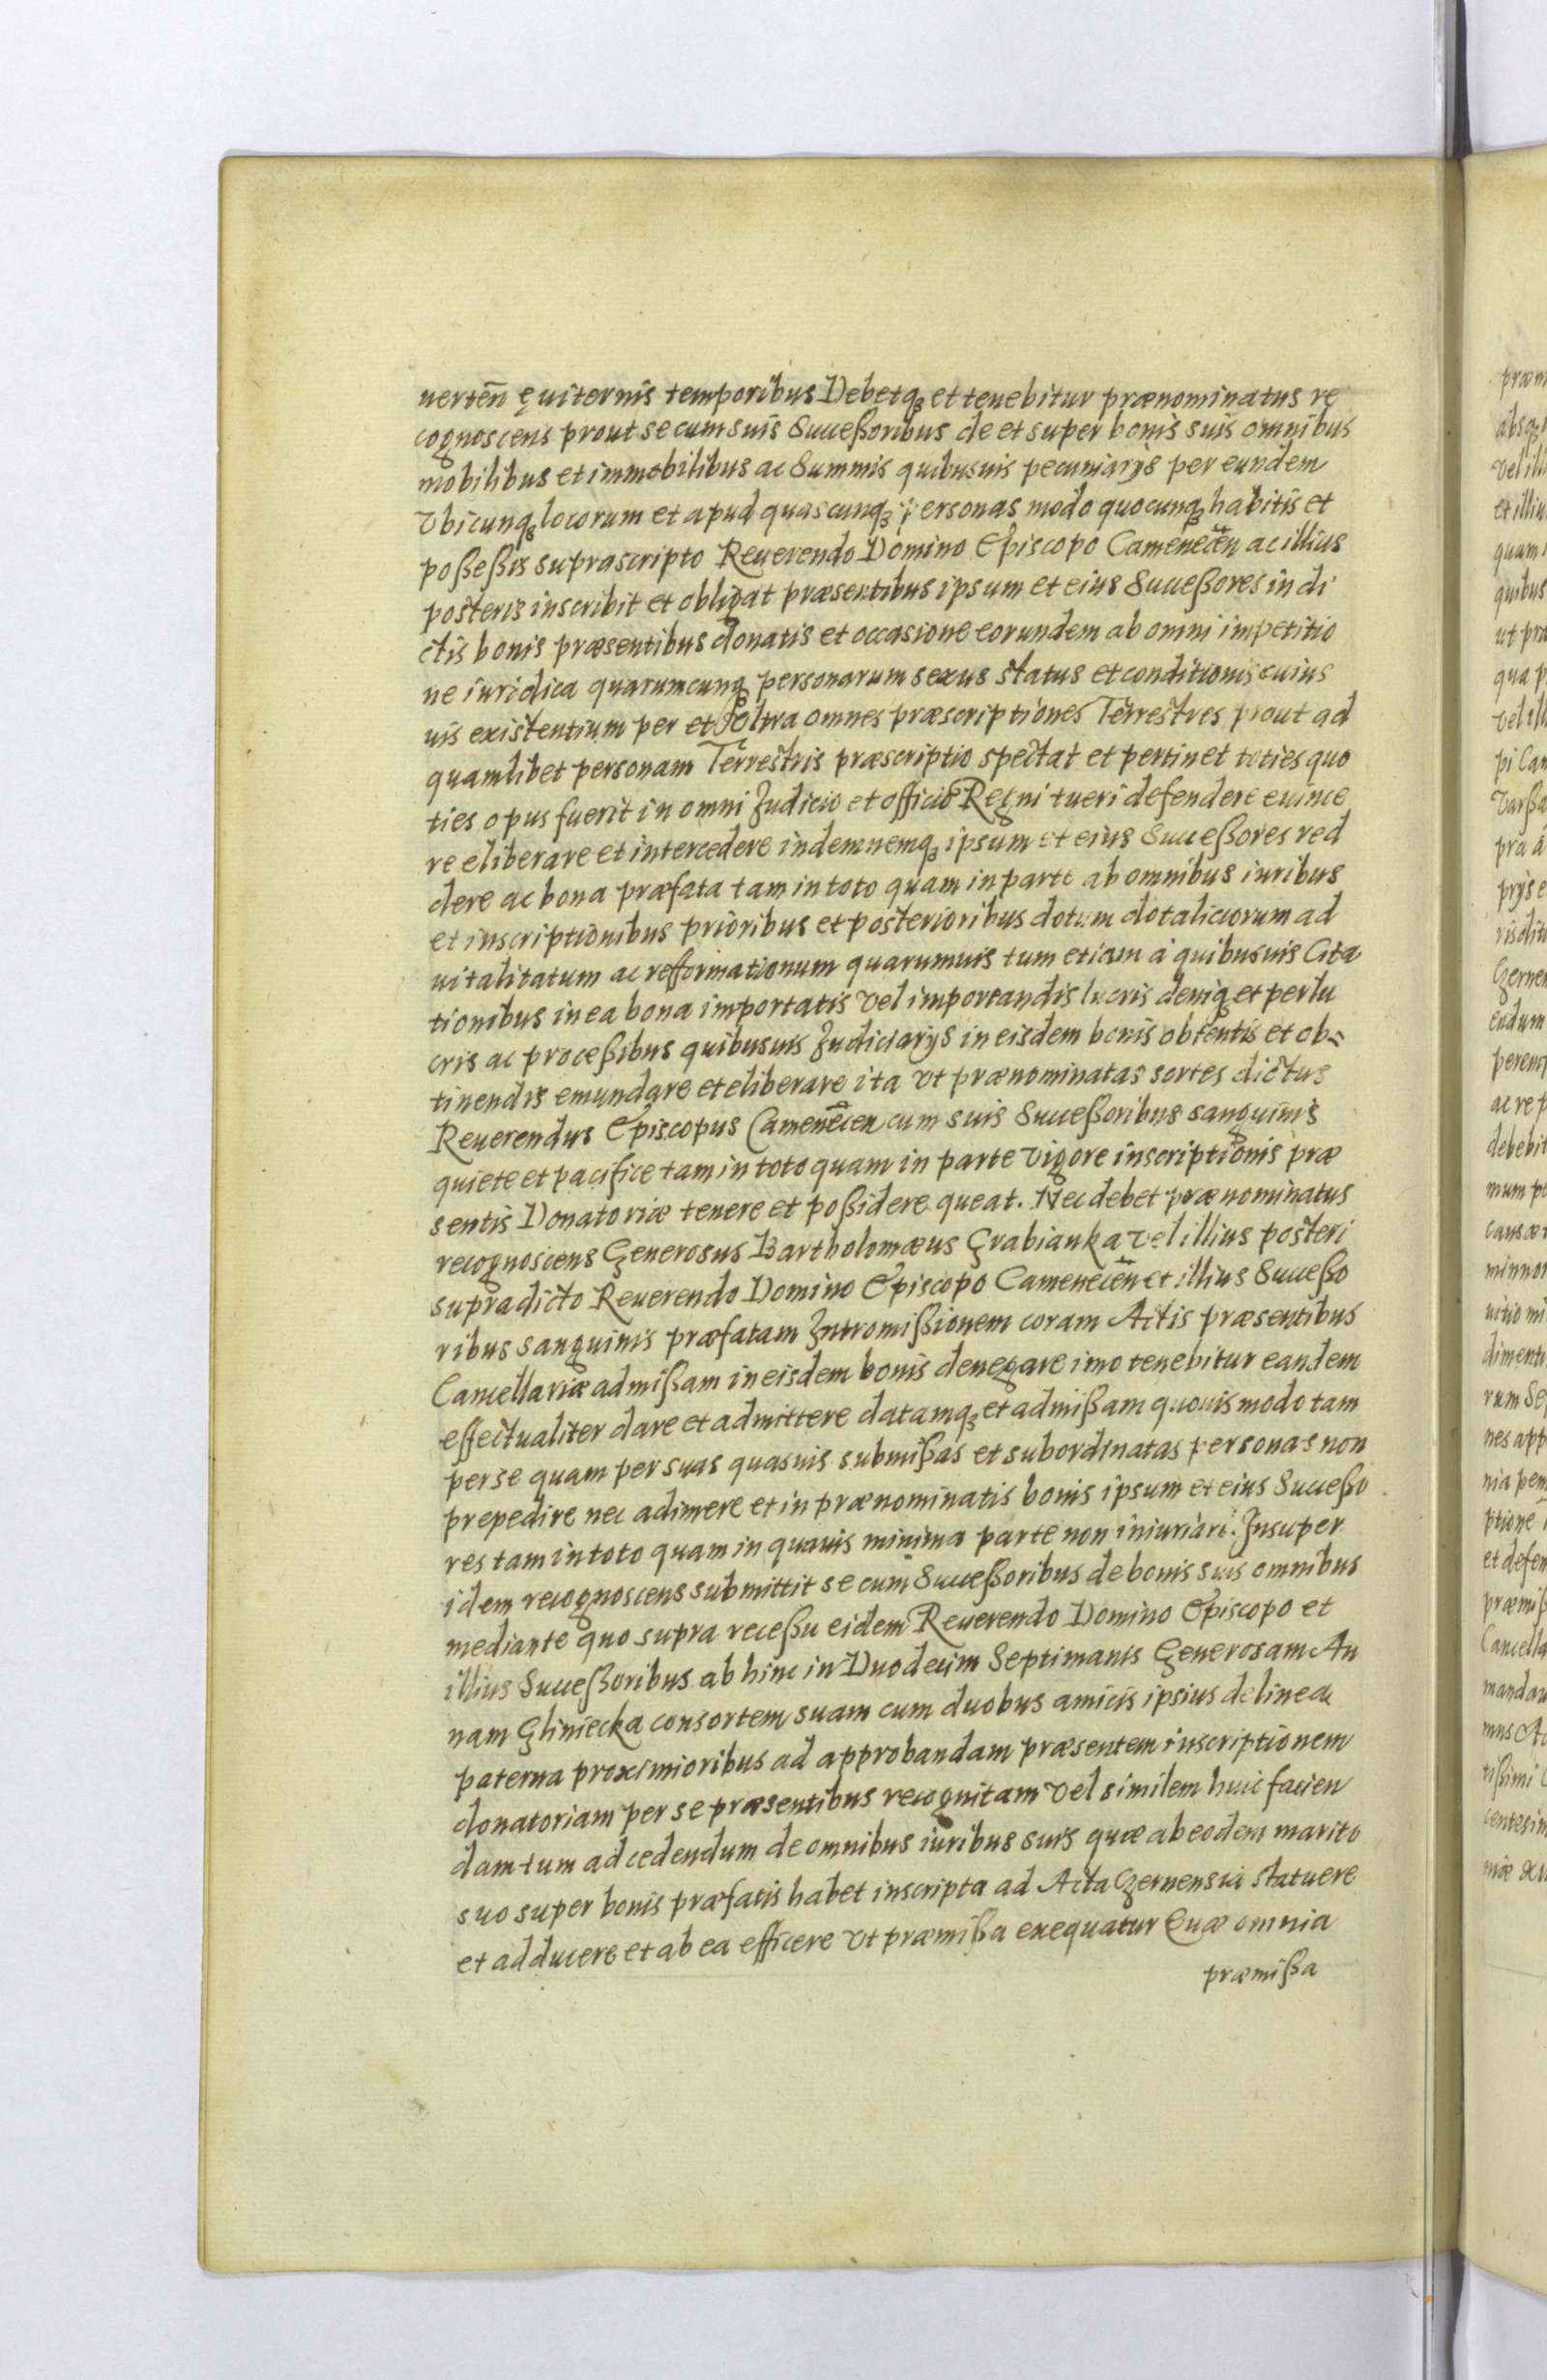 uerten̄ ęuiternis temporibus Debetqꝫ et tenebitur prænominatus re
cognoscens prout se cum suis Succeßoribus de et super bonis suis omnibus
mobilibus et immobilibus ac Summis quibusuis pecuniarijs per eundem
Vbicunqꝫ locorum et apud quascunqꝫ personas modo quocunqꝫ habitis et
poßeßis suprascripto Reuerendo Domino Episcopo Camenecen̄ ac illius
posteris inscribit et obligat præsentibus ipsum et eius Succeßores in di
ctis bonis præsentibus donatis et occasione eorundem ab omni impetitio
ne iuridica quarumcunqꝫ personarum sexus status et conditionis cuius
uis existentium per et Vltra omnes præscriptiones Terrestres prout ad
quamlibet personam Terrestris præscriptio spectat et pertinet toties quo
ties opus fuerit in omni Judicio et officio Regni tueri defendere euince
re eliberare et intercedere indemnemqꝫ ipsum et eius Succeßores red
dere ac bona præfata tam in toto quam in parte ab omnibus iuribus
et inscriptionibus prioribus et posterioribus dotum dotaliciorum ad
uitalitatum ac refformationum quarumuis tum etiam à quibusuis Cita
tionibus in ea bona importatis vel importandis lucris deniqꝫ et perlu
cris ac proceßibus quibusuis Judiciarijs in eisdem bonis obtentis et ob=
tinendis emundare et eliberare ita vt prænominatas sortes dictus
Reuerendus Episcopus Camenecen̄ cum suis Succeßoribus sanguinis
quiete et pacifice tam in toto quam in parte vigore inscriptionis præ
sentis Donatoriæ tenere et poßidere queat. Nec debet prænominatus
recognoscens Generosus Bartholomæus Grabianka vel illius posteri
supradicto Reuerendo Domino Episcopo Camenecen̄ et illius Succeßo
ribus sanguinis præfatam Intromißionem coram Actis præsentibus
Cancellariæ admißam in eisdem bonis denegare imo tenebitur eandem
effectualiter dare et admittere datamqꝫ et admißam quouis modo tam
per se quam per suas quasuis submißas et subordinatas personas non
prepedire nec adimere et in prænominatis bonis ipsum et eius Succeßo
res tam in toto quam in quauis minima parte non iniuriari. Insuper
idem recognoscens submittit se cum Succeßoribus de bonis suis omnibus
mediante quo supra receßu eidem Reuerendo Domino Episcopo et
illius Succeßoribus ab hinc in Duodecim Septimanis Generosam An
nam Gliniecka consortem suam cum duobus amicis ipsius de linea
paterna proximioribus ad approbandam præsentem inscriptionem
donatoriam per se præsentibus recognitam vel similem huic facien
dam tum ad cedendum de omnibus iuribus suis quæ ab eodem marito
suo super bonis præfatis habet inscripta ad Acta Czernensia statuere
et adducere et ab ea efficere vt præmißa exequatur Quæ omnia
præmißa
præm
absqꝫ
vel ill
et illiu
quam
quibus
ut præ
qua p
vel ill
pi Cam
Varßa
pra a
prijs e
risditi
Czernen
eadum
peremp
ac re p
debebit
mum pe
causæ
minnor
uitio mi
dimenti
rum Se
nes app
nia pen
ptione
et defen
præmiß
Cancella
mandau
mus Ac
tißimi
centesim
niæ